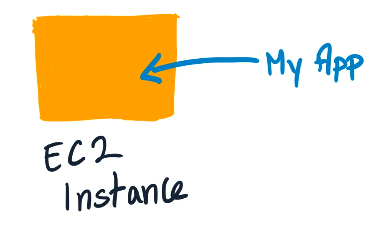 My App
EC2
Instance